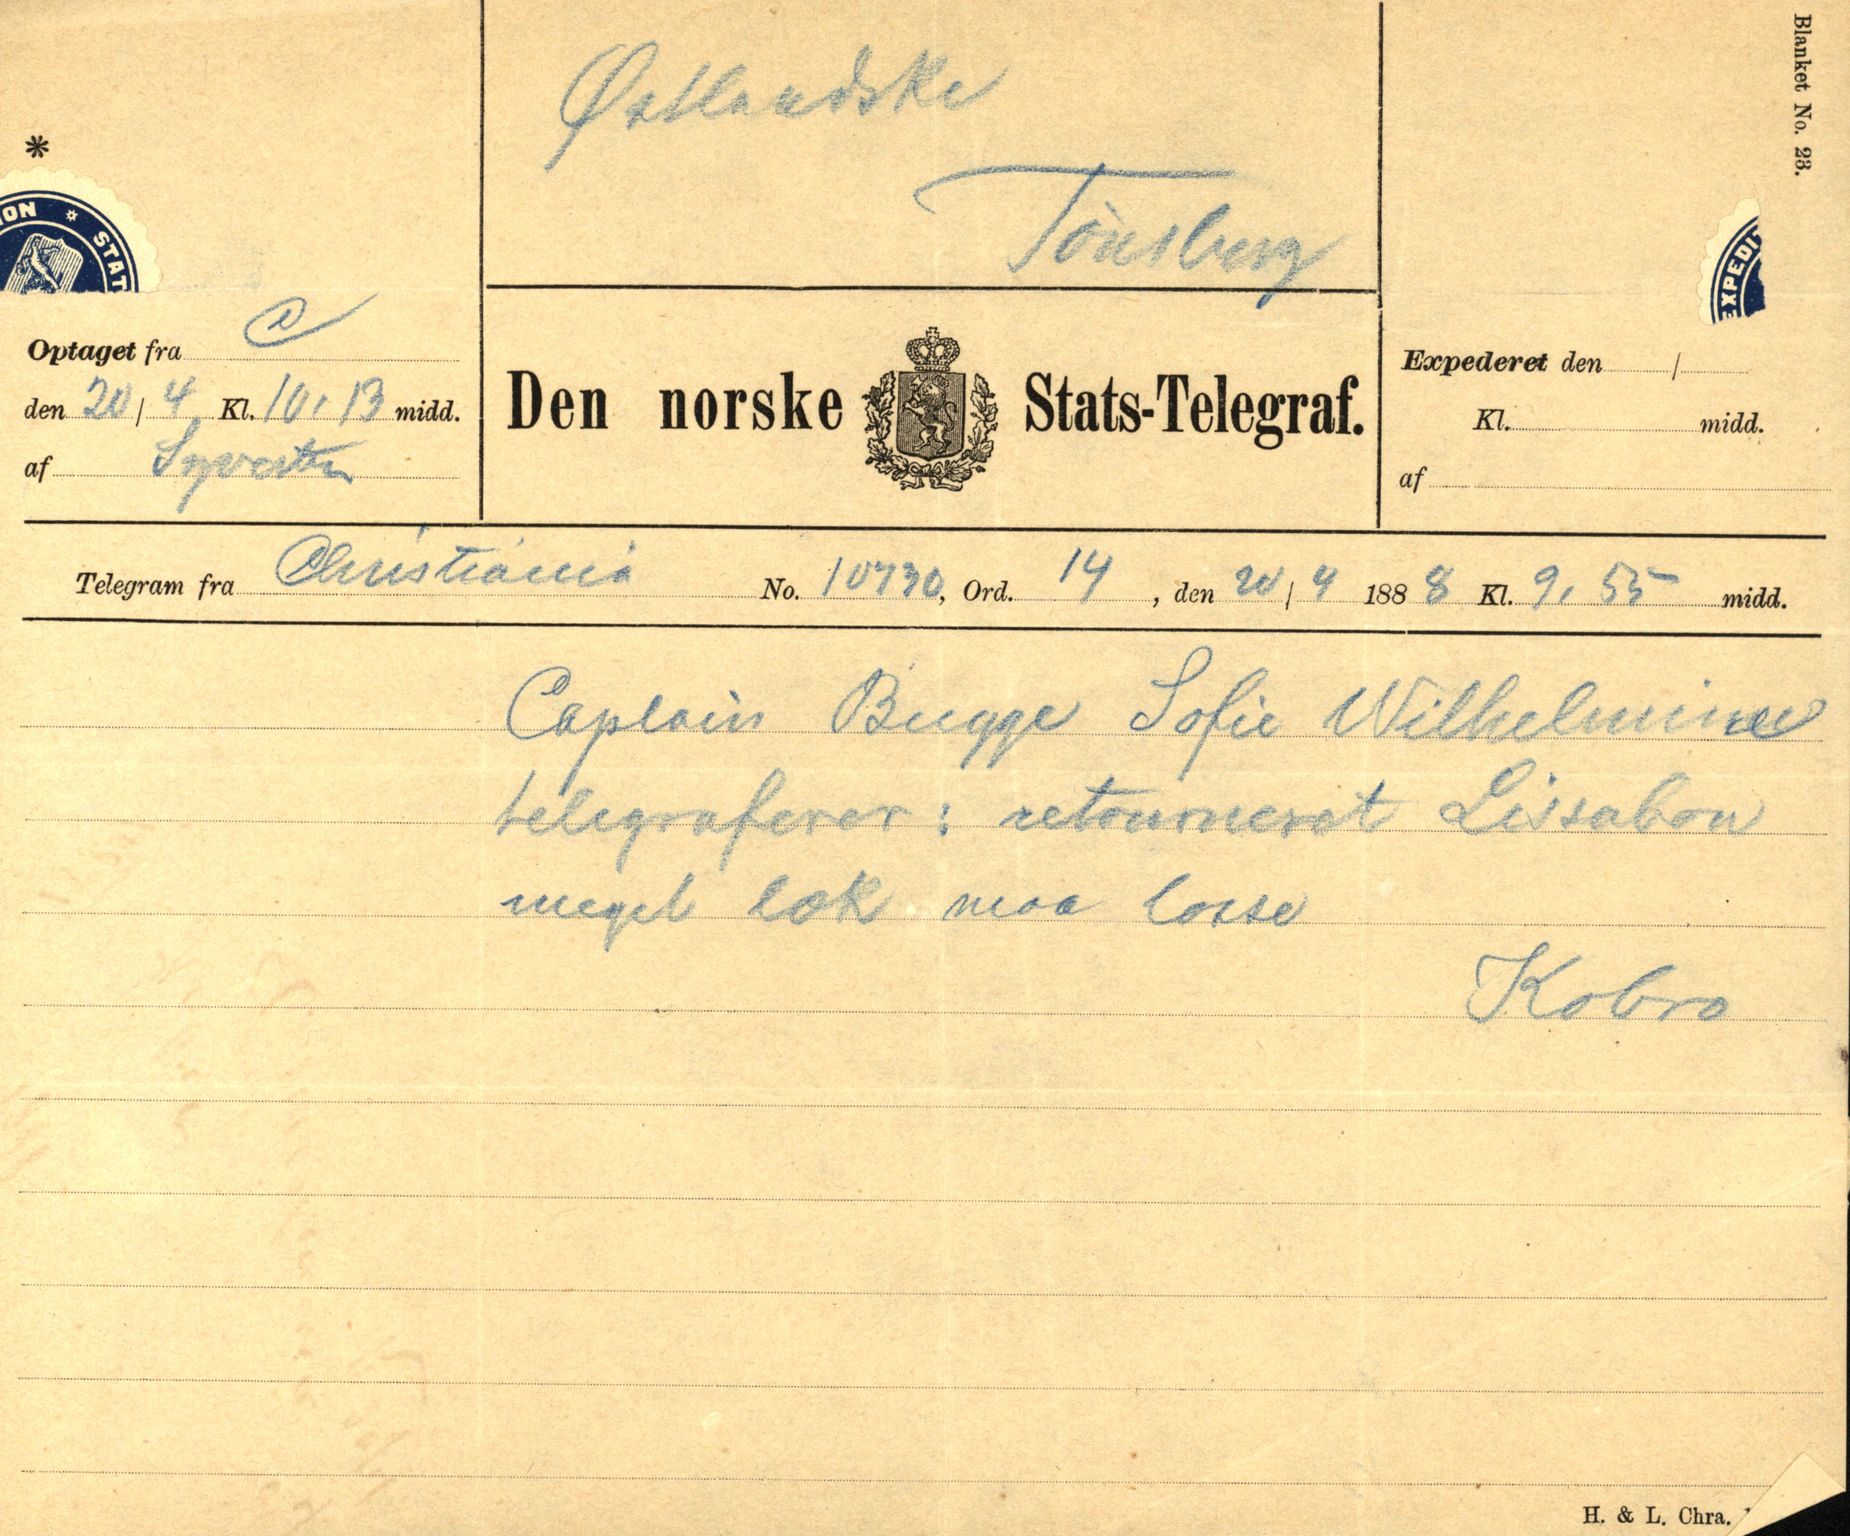 Blanket No. 23.
Østlandske
Tönsberg
*
ION * STAT
EXPEDIT
Optaget fra C
den 20/4 Kl. 10.13 midd.
af
Den norske Stats-Telegraf.
Expederet den /
Kl. midd.
af
Telegram fra Christiania No. 10730, Ord. 14, den 20/4 1888 Kl. 9.55 midd.
Captain Bugge Sofie Wilhelmine
telegraferer: retourneret Lissabon
meget læk maa losse
Kobro
H. & L. Chra.